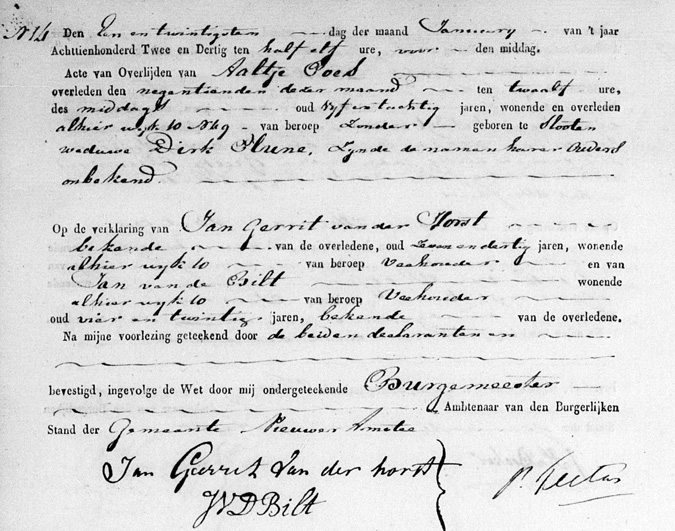 N 14 Den Een en twintigsten dag der maand January van 't jaar
Achttienhonderd Twee en Dertig ten half elf ure, voor den middag.
Acte van Overlijden van Aaltje Poes
overleden den negentienden dezer maand ten twaalf ure,
des middags oud vyf en tachtig jaren, wonende en overleden
alhier wyk 10 N 49 van beroep Zonder geboren te Slooten
weduwe Dirk Plune, Zynde de namen harer Ouders
onbekend.
Op de verklaring van Jan Gerrit van der Horst
bekende van de overledene, oud Twee en dertig jaren, wonende
alhier wyk 10 van beroep Veehouder en van
Jan van de Bilt wonende
alhier wyk 10 van beroep Veehouder
oud vier en twintig jaren, bekende van de overledene.
Na mijne voorlezing geteekend door de beiden declaranten en
bevestigd, ingevolge de Wet door mij ondergeteekende Burgemeester
Ambtenaar van den Burgerlijken
Stand der Gemeente Nieuwer Amstel
Jan Gerrit Van der horst
JVDBilt